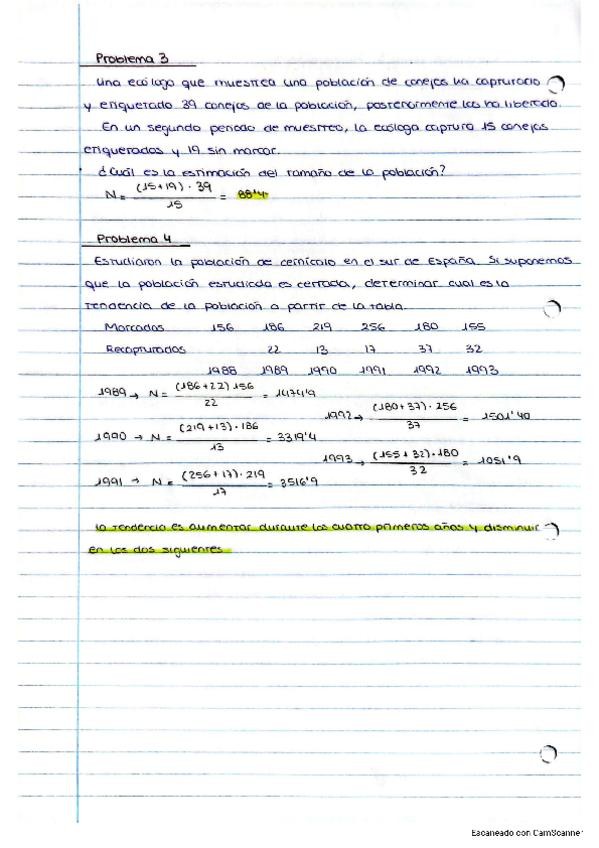 Problema 3
Una ecóloga que muestrea una población de conejos ha capturado
y etiquetado 39 conejos de la población, posteriormente los ha liberado.
En un segundo periodo de muestreo, la ecóloga captura 15 conejos
etiquetados y 19 sin marcar.
¿Cuál es la estimación del tamaño de la población?
N = (15+19) · 39 / 15 = 88'4
Problema 4
Estudiaron la población de cernícalo en el sur de España. Si suponemos
que la población estudiada es cerrada, determinar cual es la
tendencia de la población a partir de la tabla.
Marcados 156 186 219 256 180 155
Recapturados 22 13 17 37 32
1988 1989 1990 1991 1992 1993
1989 → N = (186+22) 156 / 22 = 1474'9
1992 → (180+37) · 256 / 37 = 1501'40
1990 → N = (219+13) · 186 / 13 = 3319'4
1993 → (155+32) · 180 / 32 = 1051'9
1991 → N = (256+17) · 219 / 17 = 3516'9
La tendencia es aumentar durante los cuatro primeros años y disminuir
en los dos siguientes
Escaneado con CamScanner